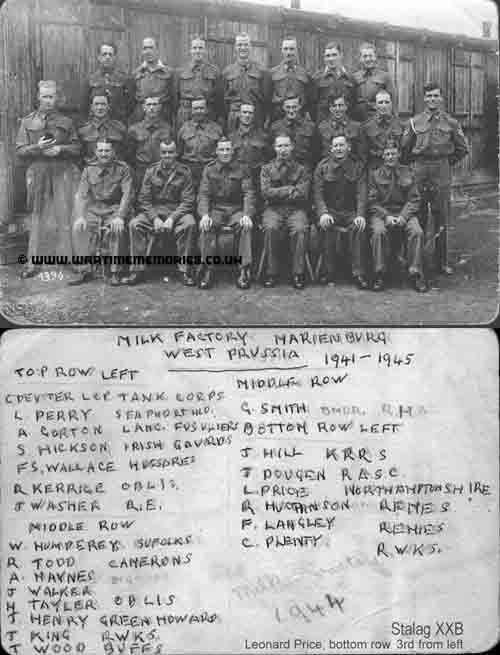 © WWW.WARTIMEMEMORIES.CO.UK
1394
MILK FACTORY MARIENBURG
WEST PRUSSIA 1941-1945
TOP ROW LEFT
LCP TANK CORPS
L PERRY SEAPHORT HLD.
A GORTON LANC. FUSULIERS
S HICKSON IRISH GAURDS
F.S. WALLACE HUSSARES
R KERRIGE OBLIS.
J WASHER R.E.
MIDDLE ROW
W. HUMPEREY SUFOLKS
R TODD CAMERONS
A. HAYNES
J WALKER
H TAYLER OBLIS
J HENRY GREEN HOWARD
J KING R.W.KS.
J WOOD BUFFS
MIDDLE ROW
G. SMITH BMDR. R.H.A
BOTTON ROW LEFT
J HILL K R R S
J DOUGEN R.A.S.C.
L. PRICE NORTHAMPTONSHIRE
R HUTHINSON REMES
F. LANGLEY REMES
C. PLENTY. R.W.KS.
1944
Stalag XXB
Leonard Price, bottom row 3rd from left